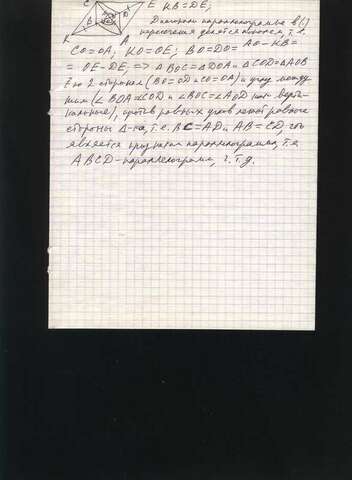 C E KB=DE;
B D Диагонали параллелограмма в (·)
K A пересечения делятся пополам, т.е.
CO=OA; KO=OE; BO=DO= KB=
= OE-DE; => ΔBOC=ΔDOA и ΔCOD=ΔAOB
по 2 сторонам (BO=OD и CO=OA) и углу между
ними (∠BOA=∠COD и ∠BOC=∠AOD как верти-
кальные), против равных углов лежат равные
стороны Δ-ка, т.е. BC=AD и AB=CD, что
является признаком параллелограмма, т.е.
ABCD-параллелограмм, ч.т.д.